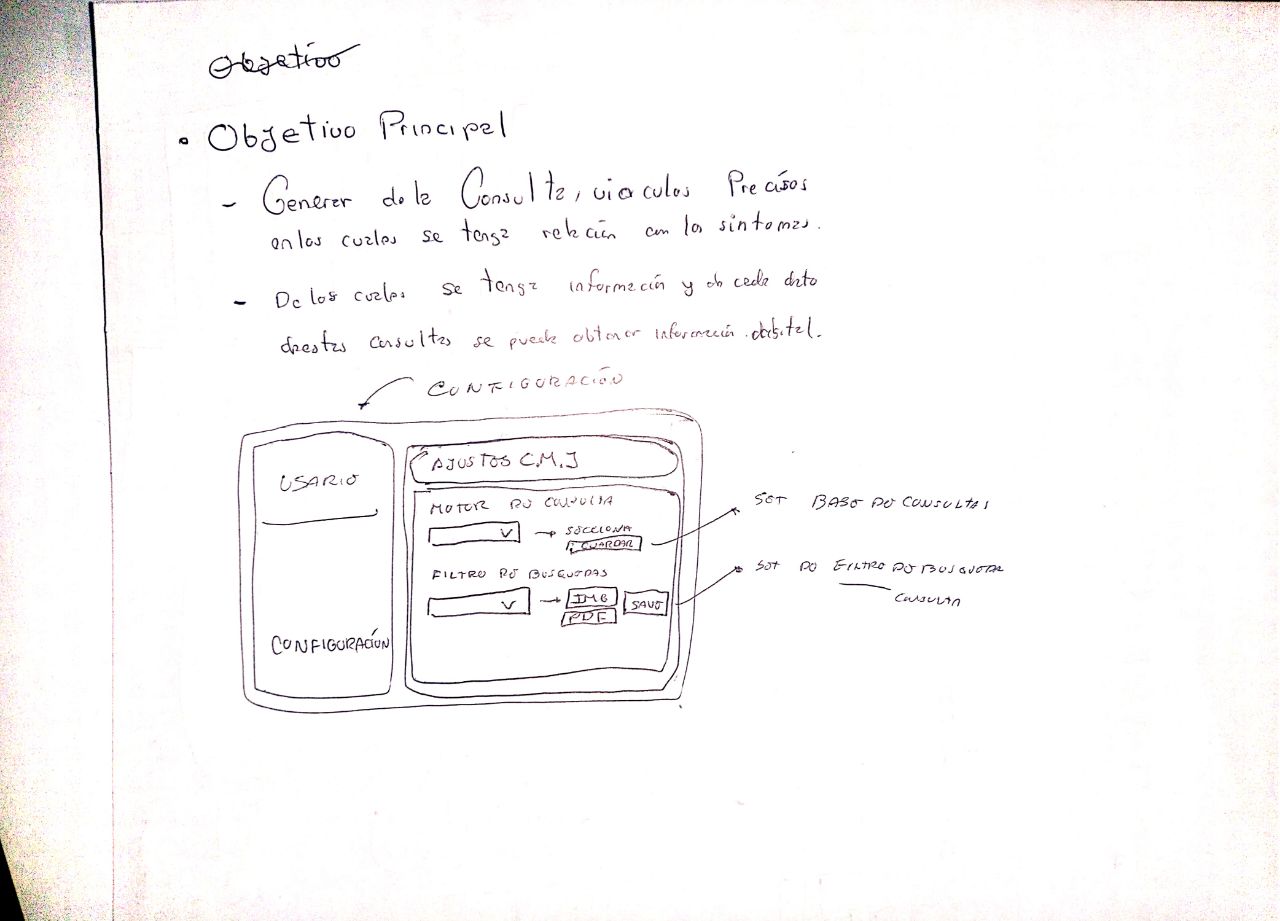 Objetivo
• Objetivo Principal
- Generar de la Consulta, vinculos Precisos
en los cuales se tenga relación con los sintomas.
- De los cuales se tenga información y de cada dato
de estas consultas se puede obtener información digital.
CONFIGURACIÓN
USARIO
CONFIGURACIÓN
AJUSTES C.M.J
MOTOR DE CONSULTA
V → SECCIONA
GUARDAR
FILTRO DE BUSQUEDAS
V → IMG SAVE
PDF
SET BASE DE CONSULTAS
SET DE FILTRO DE BUSQUEDA
CONSULTA